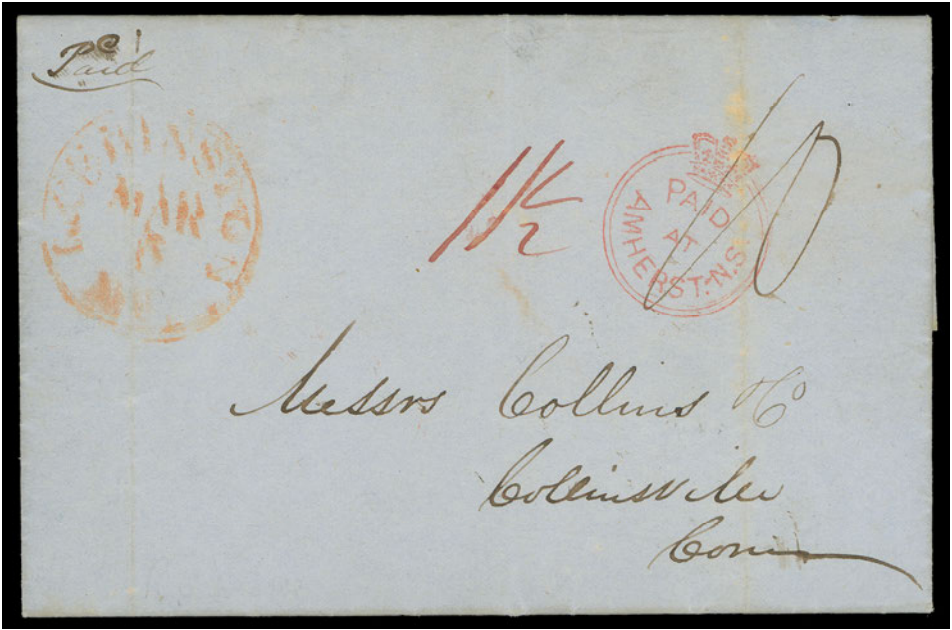 Paid
MAR
1½
10
PAID
AT
AMHERST-N.S.
Messrs Collins & Co
Collinsville
Conn